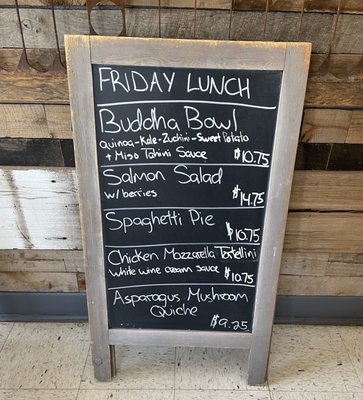 FRIDAY LUNCH
Buddha Bowl
Quinoa-Kale-Zuchini-Sweet Potato
+ Miso Tahini Sauce $10.75
Salmon Salad
w/berries $14.75
Spaghetti Pie
$10.75
Chicken Mozzarella Tortellini
white wine cream sauce $10.75
Asparagus Mushroom
Quiche
$9.25